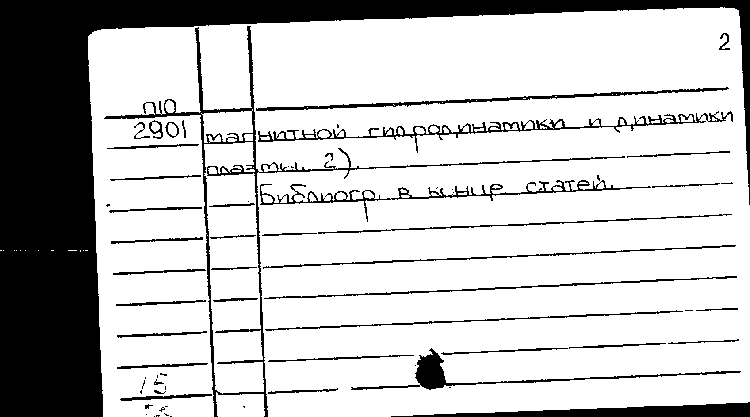 2
П10
2901 магнитной гидродинамики и динамики
плазмы. 2).
Библиогр. в конце статей.
15